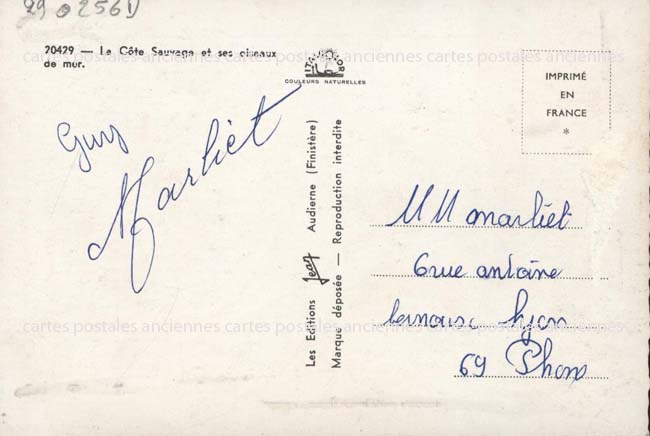 29 0256D
20429 — La Côte Sauvage et ses oiseaux
de mer.
COULEURS NATURELLES
IMPRIMÉ
EN
FRANCE
*
Guy
Marliet
Les Editions Jean Audierne (Finistère)
Marque déposée — Reproduction interdite
MM marliet
6 rue antoine
Lyon
69 Rhone
cartes postales anciennes cartes postales anciennes cartes postales anciennes
cartes postales anciennes cartes postales anciennes cartes postales anciennes